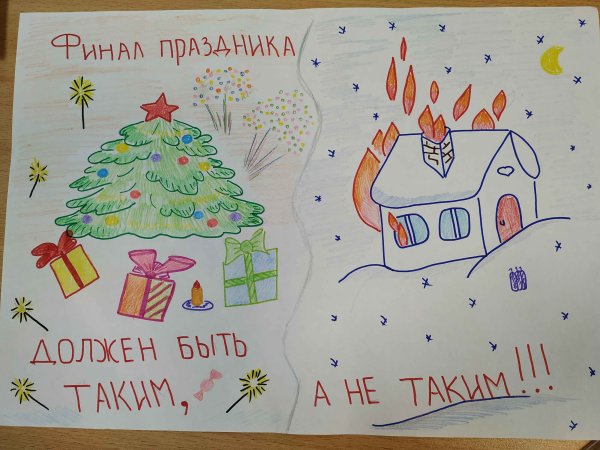 ФИНАЛ ПРАЗДНИКА
ДОЛЖЕН БЫТЬ
ТАКИМ,
А НЕ ТАКИМ!!!